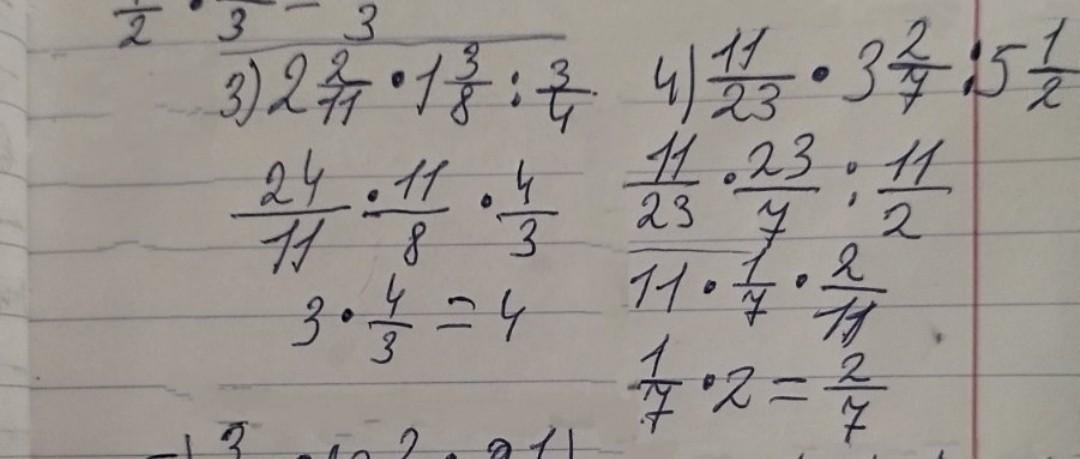 1/2 · /3 = /3
3) 2 2/11 · 1 3/8 : 3/4
24/11 · 11/8 · 4/3
3 · 4/3 = 4
4) 11/23 · 3 2/7 : 5 1/2
11/23 · 23/7 : 11/2
11 · 1/7 · 2/11
1/7 · 2 = 2/7